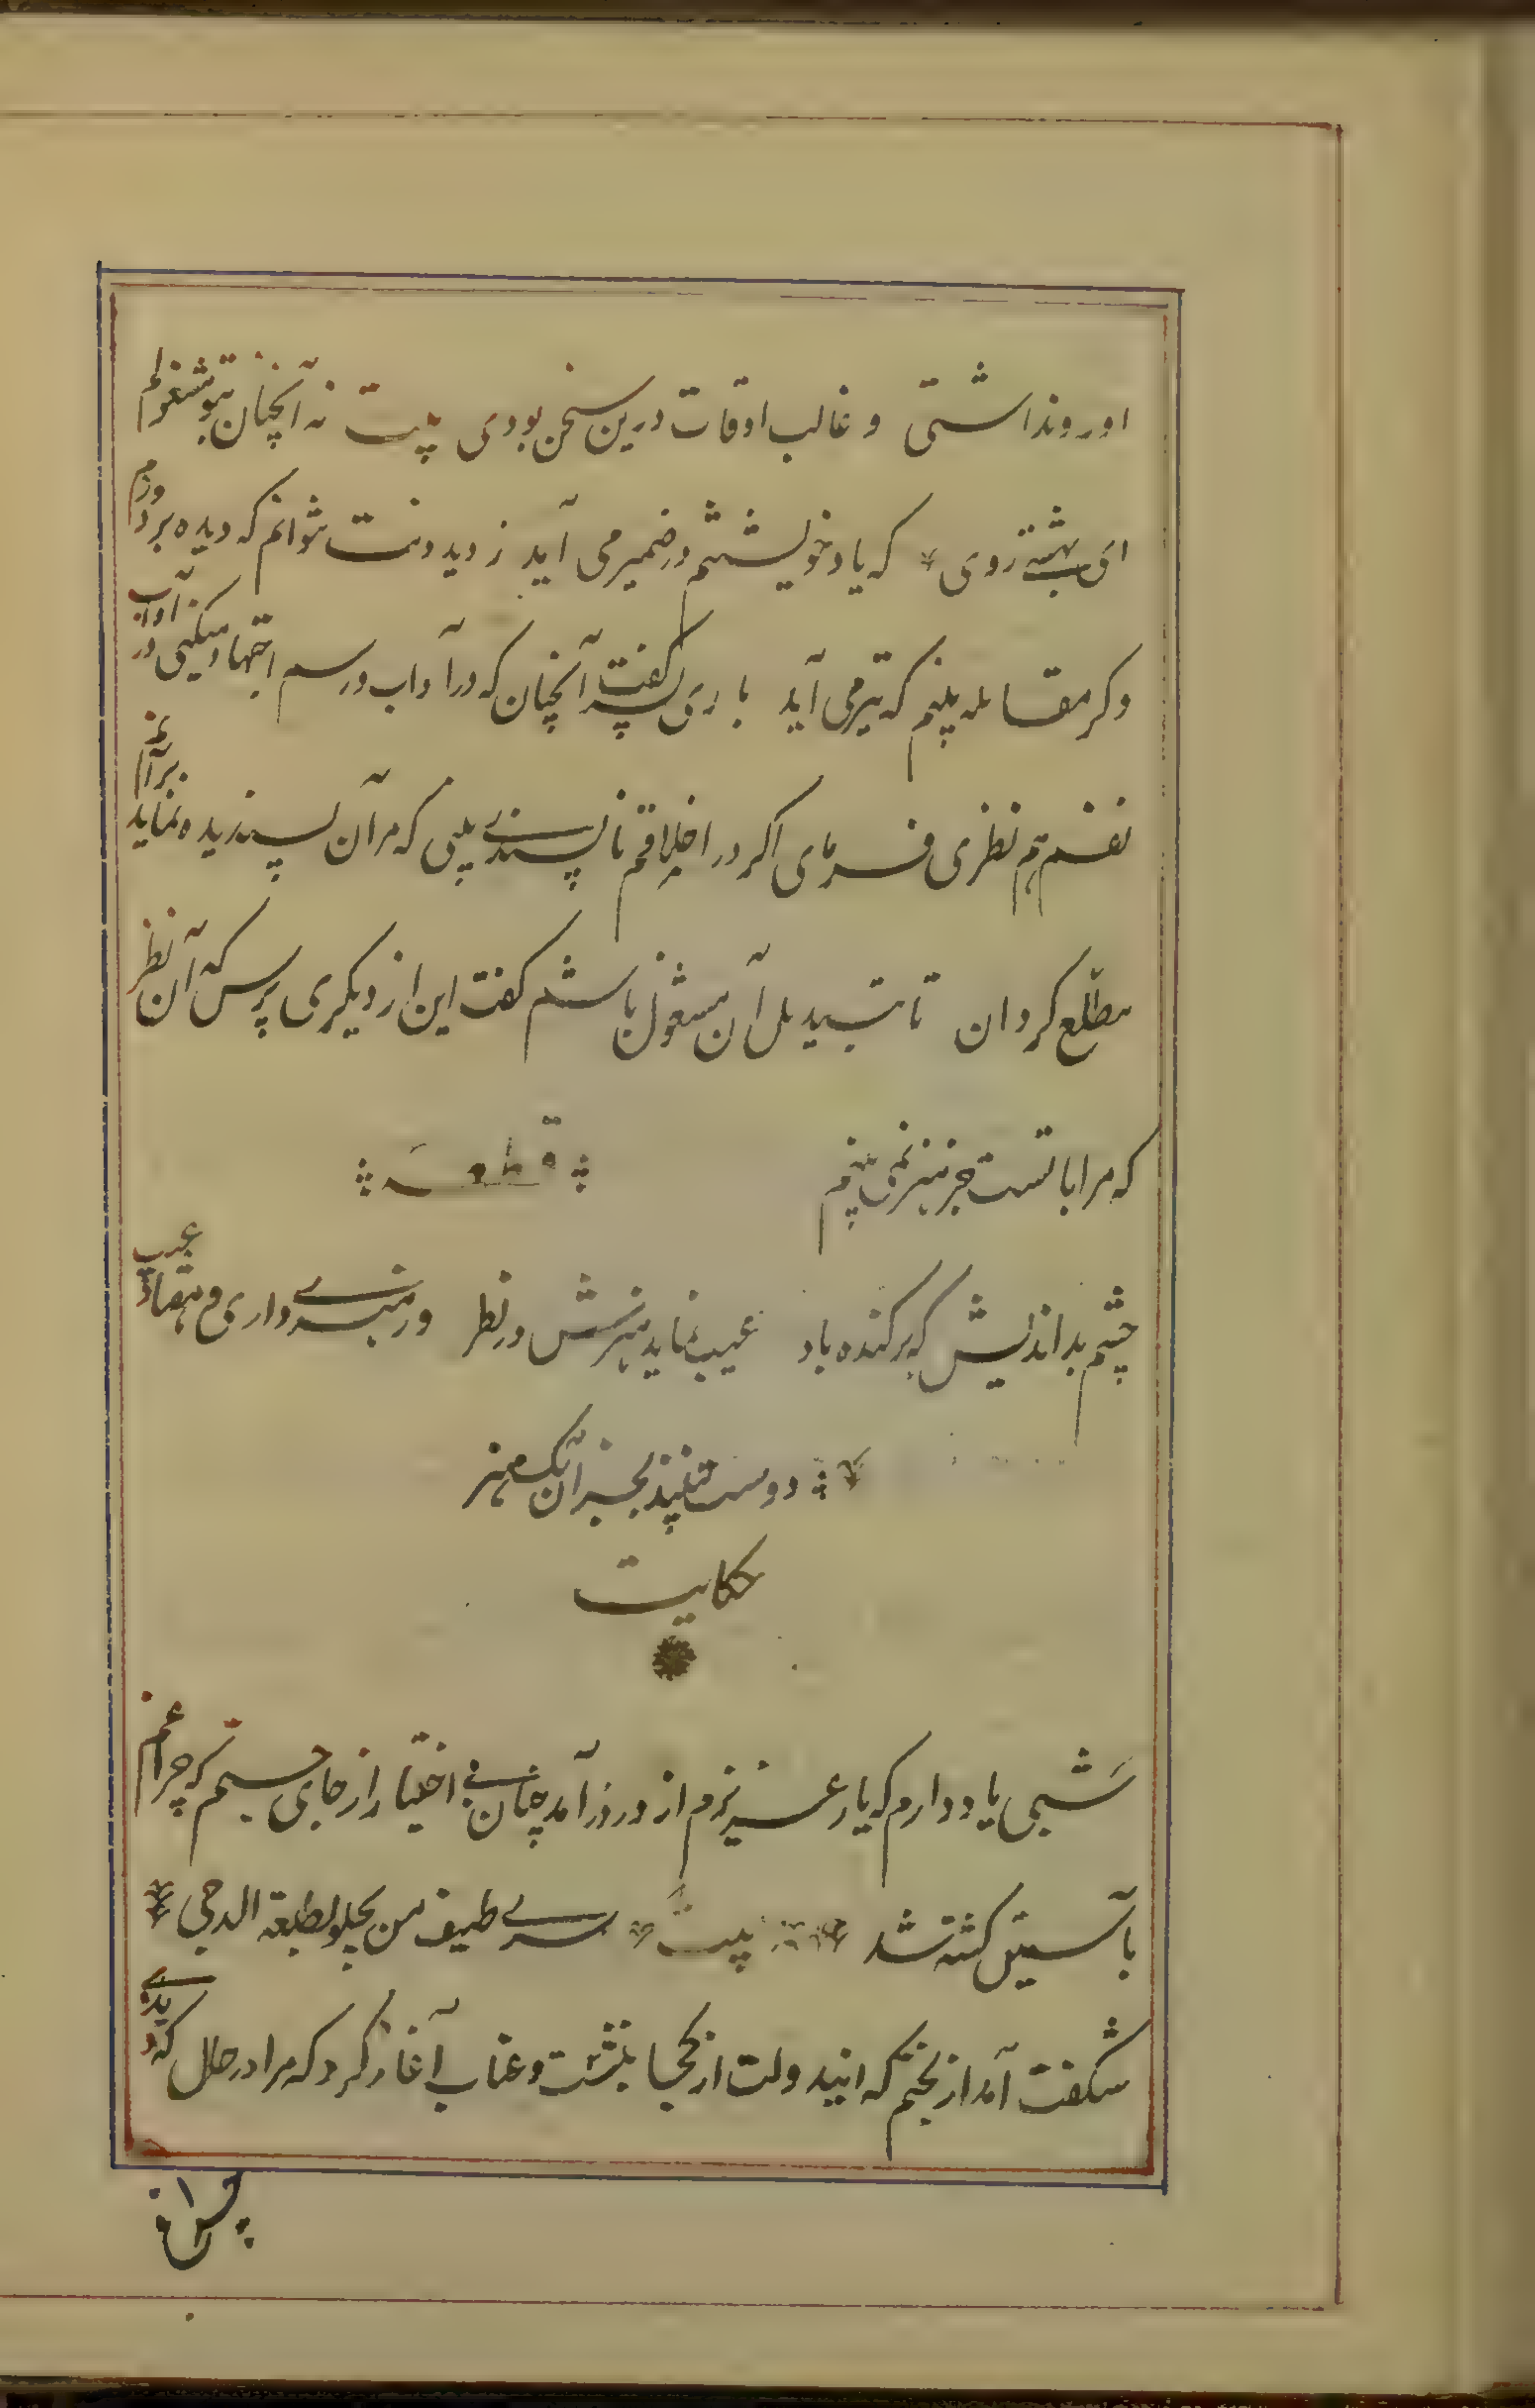 او روا نداشتی و غالب اوقات درین سخن بودی بیت نه آنچنان بتو مشغولم
ای بهشتی روی * که یاد خویشتنم در ضمیر می آید ز دیدنت نتوانم که دیده بر دوزم
وکر مقابله بینم که تیر می آید باری پسر کفت آنچنان که در آداب درسم اجتهاد میکنی در آداب
نفسم هم نظری فرمای اکر در اخلاقم ناپسندی بینی که مرا آن پسندیده نماید بر آنم
مطلع کردان تا بتبدیل آن مشغول باشم کفت این از دیکری پرس که آن نظر
که مرا با تست جز هنر نمی بینم قطعه
چشم بداندیش که برکنده باد عیب نماید هنرش در نظر ور هنری داری و هفتاد عیب
دوست نبیند بجز آن یک هنر
حکایت
شبی یاد دارم که یار عزیزم از در درآمد چنان بی اختیار از جای جستم که چراغم
بآستین کشته شد بیت * سری طیف من یجلو بطلعته الدجی *
شکفت آمد از بختم که ایندولت از کجا بنشست و عتاب آغاز کرد که مرا در حال که بدیدی
چراغ